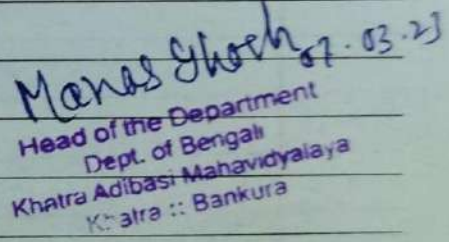 Manas Ghosh 07.03.23
Head of the Department
Dept. of Bengali
Khatra Adibasi Mahavidyalaya
Khatra :: Bankura